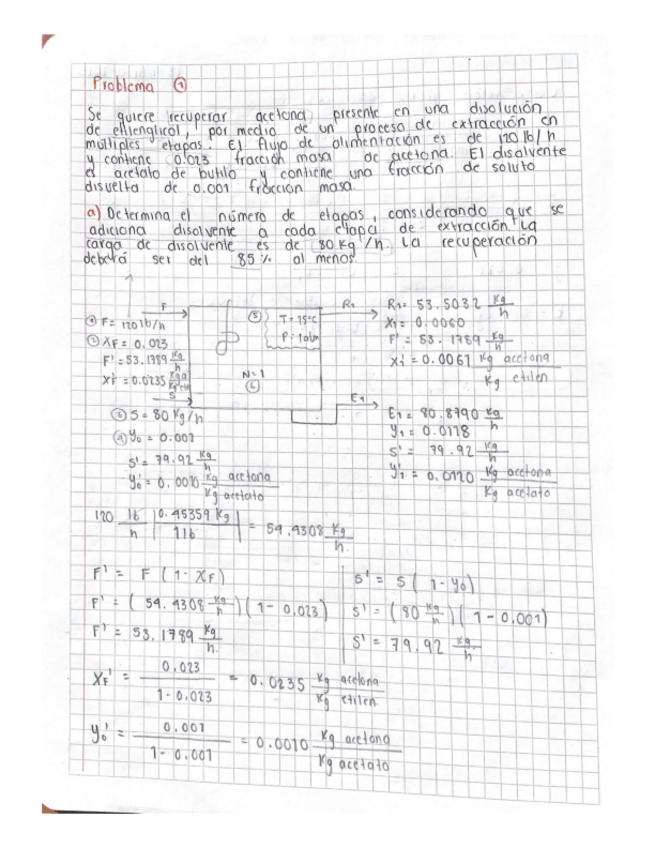 Problema ①
Se quiere recuperar acetona presente en una disolución
de etilenglicol, por medio de un proceso de extracción en
múltiples etapas. El flujo de alimentación es de 120 lb/h
y contiene 0.023 fracción masa de acetona. El disolvente
es acetato de butilo y contiene una fracción de soluto
disuelta de 0.001 fracción masa.
a) Determina el número de etapas, considerando que se
adiciona disolvente a cada etapa de extracción La
carga de disolvente es de 80 Kg/h. La recuperación
deberá ser del 85% al menos.
F
① F= 120 lb/h
② XF = 0.023
F' = 53.1789 Kg/h
XF' = 0.0235
S
③ S = 80 Kg/h
④ y0 = 0.001
S' = 79.92 Kg/h
y0' = 0.0010 Kg acetona / Kg acetato
⑤ T = 75°C
P = 1 atm
N=1
⑥
R1
R1= 53.5032 Kg/h
X1 = 0.0060
F' = 53.1789 Kg/h
X1' = 0.0061 Kg acetona / Kg etilen
E1
E1 = 80.8790 Kg/h
y1 = 0.0118
S' = 79.92 Kg/h
y1' = 0.0120 Kg acetona / Kg acetato
120 lb/h | 0.45359 Kg / 1 lb = 54.4308 Kg/h.
F' = F (1 - XF)
F' = (54.4308 Kg/h)(1 - 0.023)
F' = 53.1789 Kg/h.
S' = S (1 - y0)
S' = (80 Kg/h)(1 - 0.001)
S' = 79.92 Kg/h
XF' = 0.023 / 1 - 0.023 = 0.0235 Kg acetona / Kg etilen
y0' = 0.001 / 1 - 0.001 = 0.0010 Kg acetona / Kg acetato